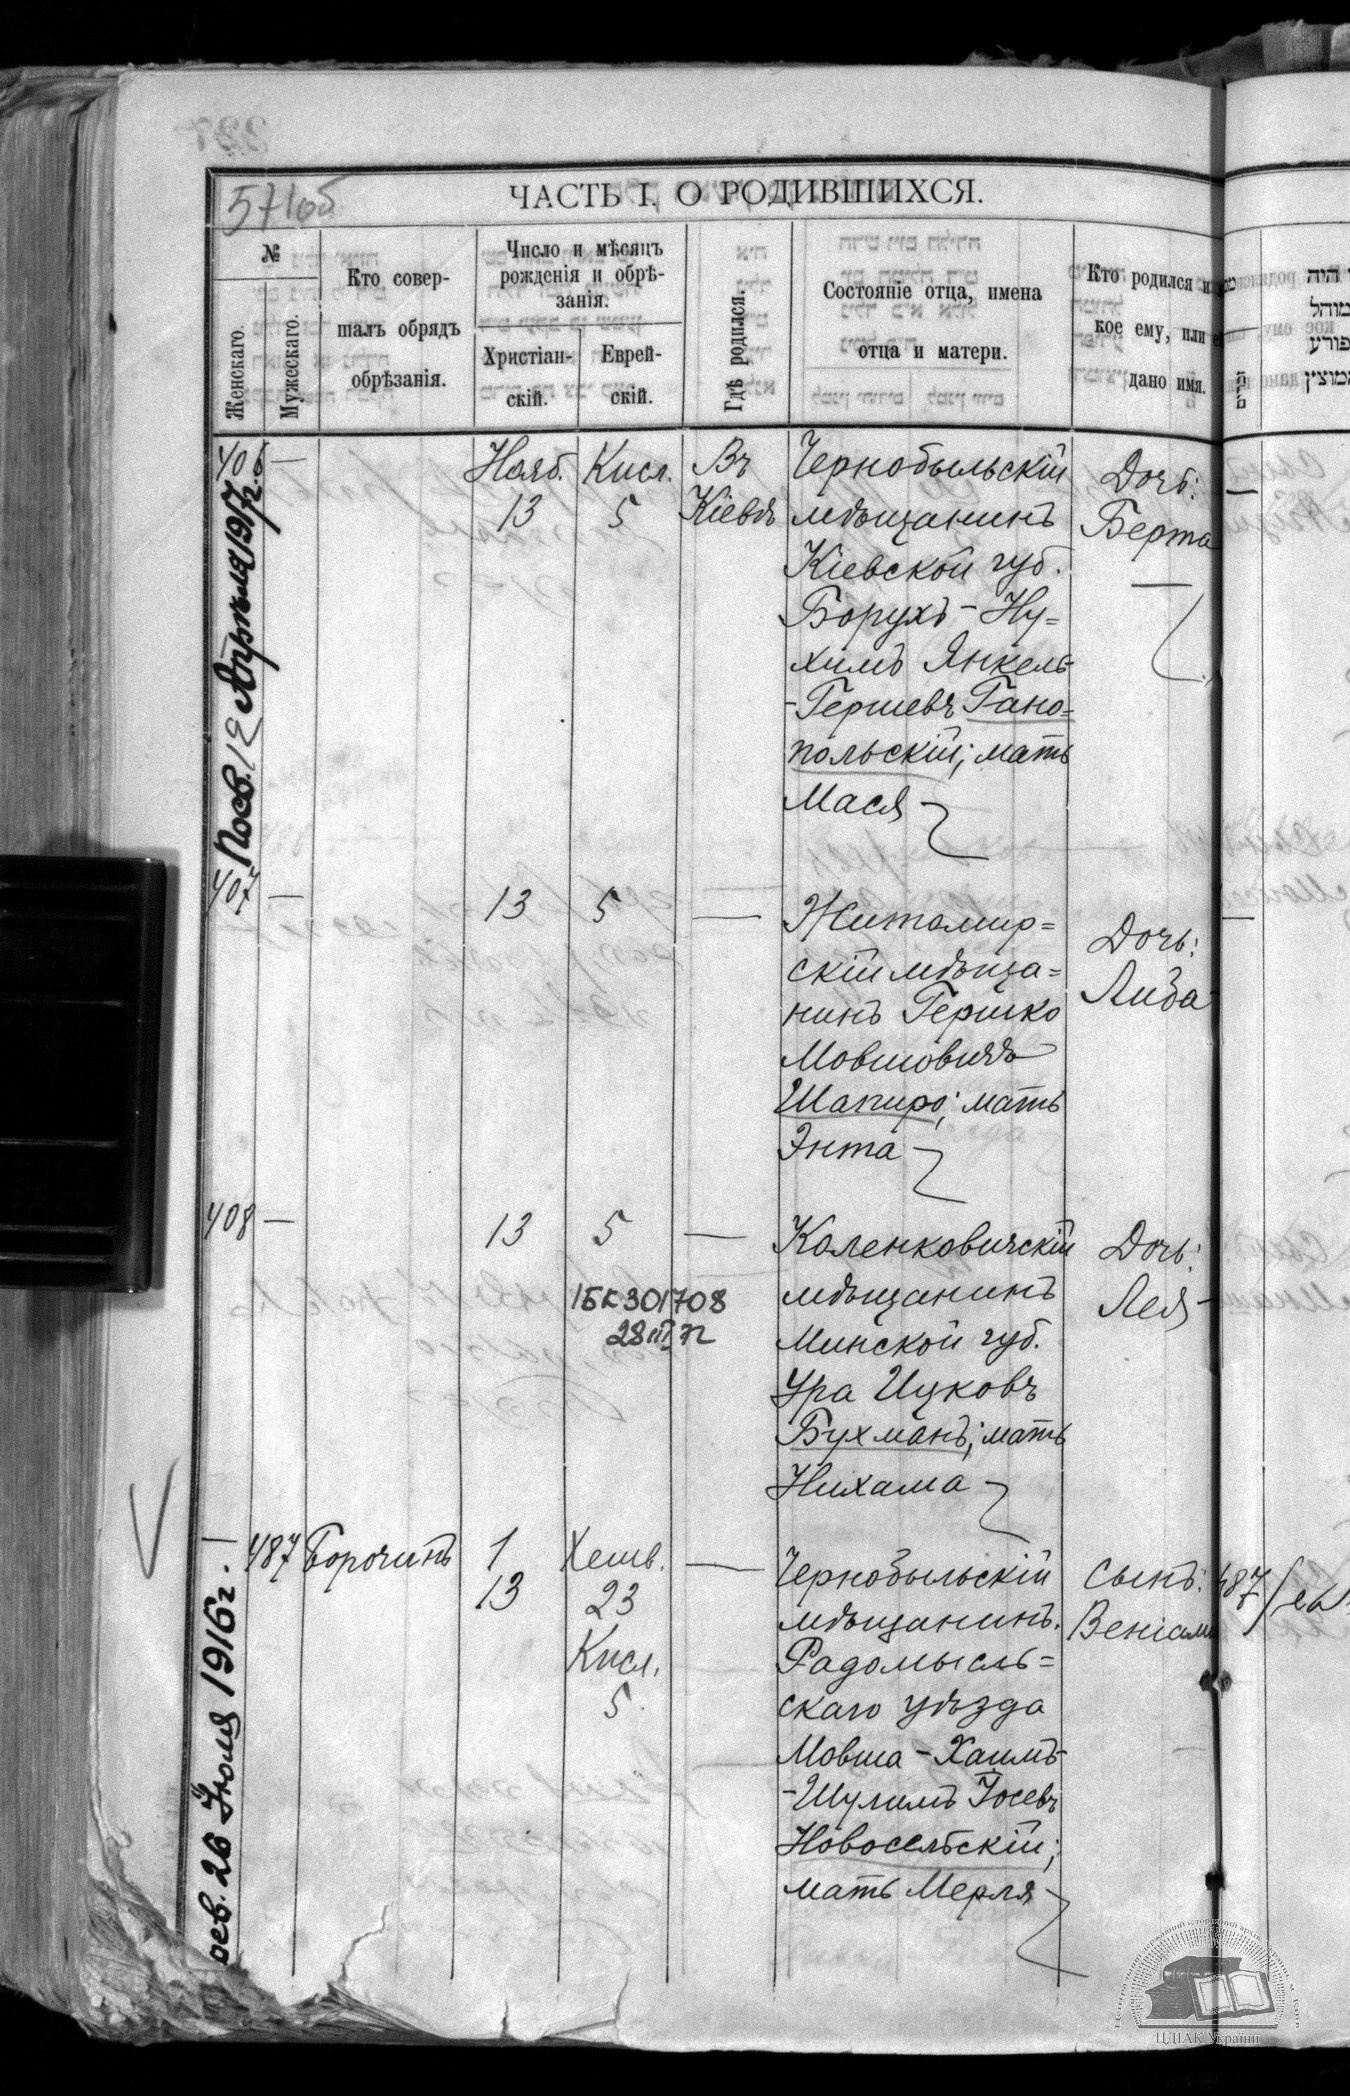 571об
ЧАСТЬ I. О РОДИВШИХСЯ.
№
Женскаго.
Мужескаго.
Кто совер-
шалъ обрядъ
обрѣзанія.
Число и мѣсяцъ
рожденія и обрѣ-
занія.
Христіан-
скій.
Еврей-
скій.
Гдѣ родился.
Состояніе отца, имена
отца и матери.
Кто родился и
кое ему, или
дано имя.
406 —
Нояб.
13
Кисл.
5
Въ
Кіевѣ
Чернобыльскій
мѣщанинъ
Кіевской губ.
Борухъ-Ну=
химъ Янкель-
-Гершевъ Гано=
польскій; мать
Мася
Дочь:
Берта
—
407 —
13
5
—
Житомир=
скій мѣща=
нинъ Гершко
Мовшовичъ
Шапиро; мать
Энта
Дочь:
Лиза
—
408 —
13
5
—
1БК301708
28 III 72
Каленковичскій
мѣщанинъ
Минской губ.
Ура Ицковъ
Бухманъ; мать
Нихама
Дочь:
Лея
— 487
Борочинъ
1
13
Хешв.
23
Кисл.
5
—
Чернобыльскій
мѣщанинъ
Радомысль=
скаго уѣзда
Мовша-Хаимъ-
-Шулимъ Іосевъ
Новосельскій;
мать Мерля
Сынъ:
Веніами
487
Апрѣля 1917 г.
26 Іюля 1916 г.
היה
מוהל
פורע
מוצין
ЦДІАК України